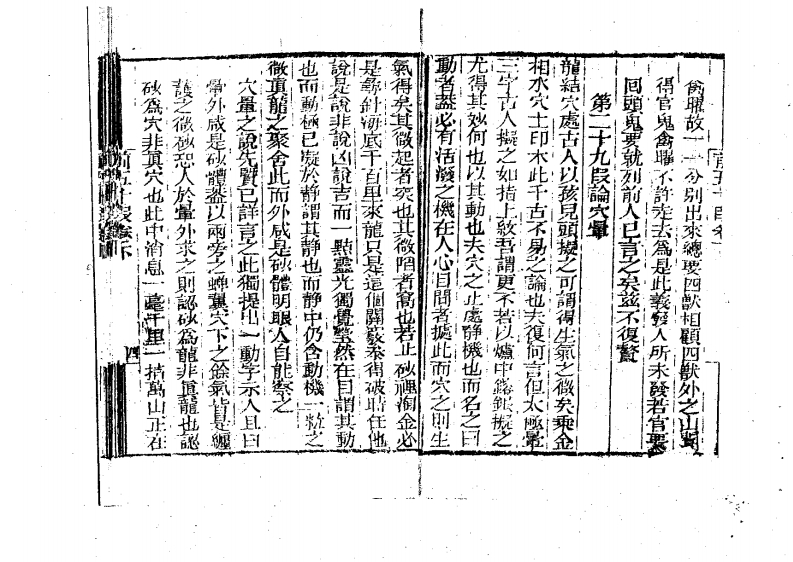 禽曜故一一分別出來總要四獸相顧四獸外之山要
得官鬼禽曜不許走去為是此義發人所未發若官要
回頭鬼要就列前人已言之矣茲不復贅
第二十九段論穴暈
龍結穴處古人以孩兒頭擬之可謂得生氣之微矣乘金
相水穴土印木此千古不易之論也夫復何言但太極暈
三字古人擬之如指上紋吾謂更不若以爐中鎔銀擬之
尤得其妙何也以其動也夫穴之止處靜機也而名之曰
動者蓋必有活潑之機在人心目間者據此而穴之則生
氣得矣其微起者突也其微陷者窩也若止砂裡淘金必
是尋針海底千百里來龍只是這個關竅參得破時任他
說是說非說凶說吉而一點靈光獨覺瑩然在目謂其動
也而動極已凝於靜謂其靜也而靜中仍含動機一粒之
微真龍之聚舍此而外咸是砂體明眼人自能察之
穴暈之說先賢已詳言之此獨提出一動字示人且曰
暈外咸是砂體蓋以兩旁之蟬翼穴下之餘氣皆是纏
護之微砂恐人於暈外求之則認砂為龍非真龍也認
砂為穴非真穴也此中消息一毫千里一指萬山正在
前五十段卷下
四